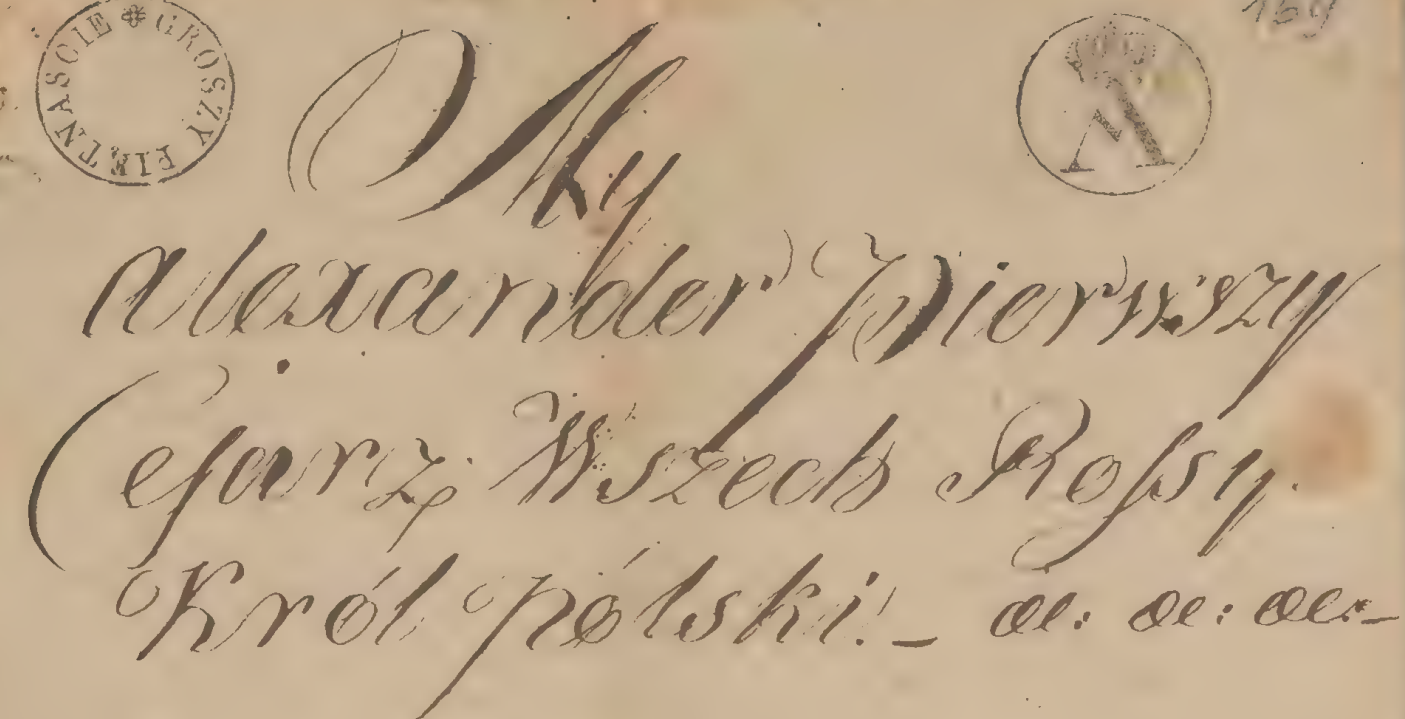 GROSZY PIĘTNAŚCIE
159
My
Alexander Pierwszy
Cesarz Wszech Rossy
Król Pólski. – &c: &c: &c: –